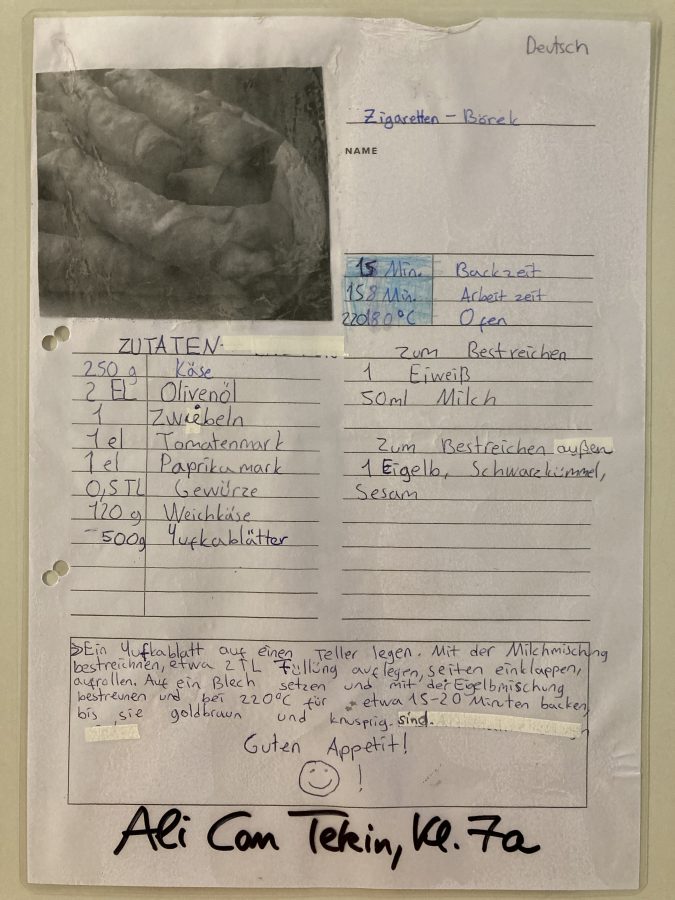 Deutsch
Zigaretten - Börek
NAME
15 Min. Backzeit
Min. Arbeitzeit
°C Ofen
ZUTATEN
250 g Käse
2 EL Olivenöl
1 Zwiebeln
1 el Tomatenmark
1 el Paprikamark
0,5 TL Gewürze
120 g Weichkäse
500g Yufkablätter
Zum Bestreichen
1 Eiweiß
50ml Milch
Zum Bestreichen außen
1 Eigelb, Schwarzkümmel,
Sesam
Ein Yufkablatt auf einen Teller legen. Mit der Milchmischung
bestreichnen, etwa 2 TL Füllung auflegen, seiten einklappen,
aufrollen. Auf ein Blech setzen und mit der Eigelbmischung
bestreunen und bei 220°C für etwa 15-20 Minuten backen,
bis sie goldbraun und knusprig sind.
Guten Appetit!
!
Ali Can Tekin, Kl. 7a